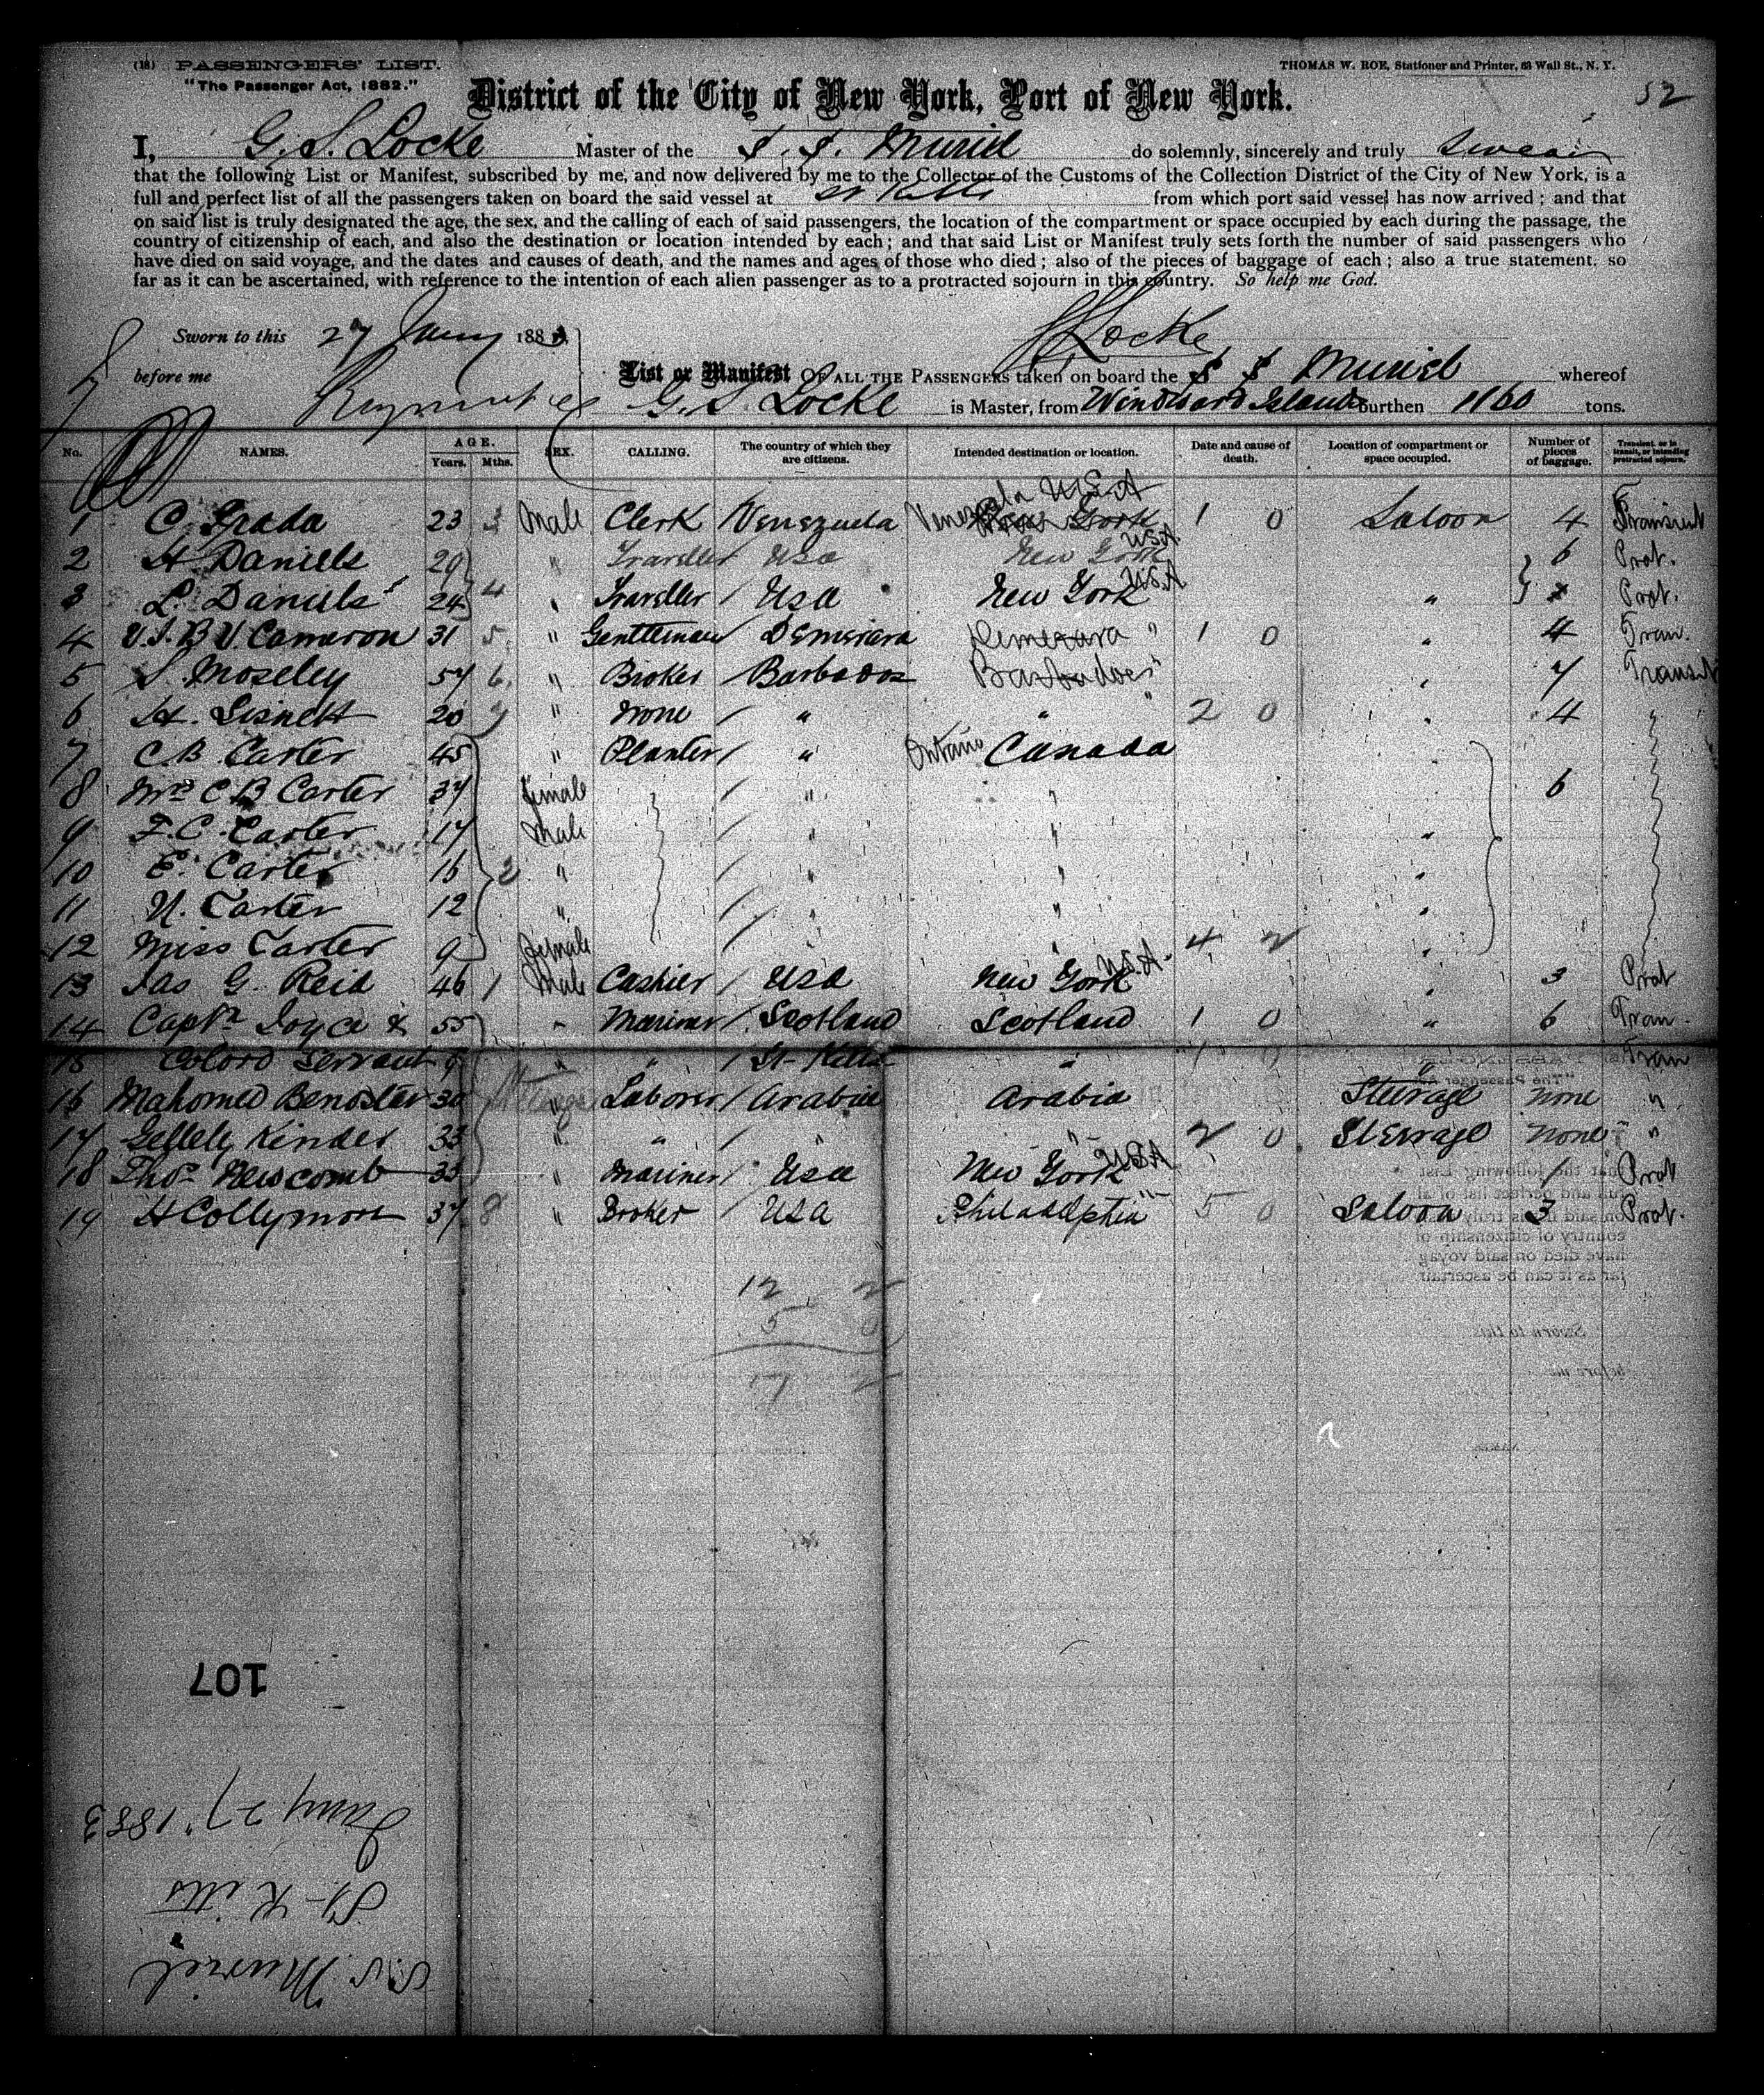 (18) PASSENGERS' LIST.
THOMAS W. ROE, Stationer and Printer, 53 Wall St., N. Y.
"The Passenger Act, 1882."
District of the City of New York, Port of New York.
52
I, G. S. Locke Master of the S. S. Muriel do solemnly, sincerely and truly swear
that the following List or Manifest, subscribed by me, and now delivered by me to the Collector of the Customs of the Collection District of the City of New York, is a
full and perfect list of all the passengers taken on board the said vessel at St Kitts from which port said vessel has now arrived; and that
on said list is truly designated the age, the sex, and the calling of each of said passengers, the location of the compartment or space occupied by each during the passage, the
country of citizenship of each, and also the destination or location intended by each; and that said List or Manifest truly sets forth the number of said passengers who
have died on said voyage, and the dates and causes of death, and the names and ages of those who died; also of the pieces of baggage of each; also a true statement, so
far as it can be ascertained, with reference to the intention of each alien passenger as to a protracted sojourn in this country. So help me God.
Sworn to this 27 Jany 1883
Locke
before me
List or Manifest OF ALL THE PASSENGERS taken on board the S S Muriel whereof
G. S Locke is Master, from Windward Islands burthen 1160 tons.
No. NAMES. AGE. Years. Mths. SEX. CALLING. The country of which they are citizens. Intended destination or location. Date and cause of death. Location of compartment or space occupied. Number of pieces of baggage. Transient, or in transit, or intending protracted sojourn.
1 C. Prada 23 3 Male Clerk Venezuela Venezuela U.S.A New York 1 0 Saloon 4 Transient
2 H Daniels 29 " Traveller USa New York USA 6 Prot.
3 L. Daniels 24 4 " Traveller USa New York USA " Prot.
4 V. S. B V. Cameron 31 5 " Gentleman Demerara Demerara " 1 0 " 4 Tran.
5 S. Moseley 57 6 " Broker Barbados Barbadoes " " 7 Transit
6 H. Lisnett 20 " None " " 2 0 " 4 "
7 C. B. Carter 45 " Planter " Ontario Canada
8 Mrs C B Carter 37 female " " 6
9 F. C. Carter 17 Male " " "
10 E. Carter 16 2 " " " "
11 N. Carter 12 " " " "
12 Miss Carter 9 female " 4 2 "
13 Jas G. Reid 46 1 Male Cashier USa New York U.S.A. " 3 Prot
14 Captn Joyce & 55 " Mariner Scotland Scotland 1 0 " 6 Tran.
15 Colord Servant 9 " " St-Kitts " 1 0 " Tran
16 Mahomed Benoster 30 " Laborer Arabia Arabia Steerage None "
17 Gellely Kinder 33 " " " " 2 0 Steerage None "
18 Thos Newcomb 33 " Mariner Usa New York USA 1 Prot
19 H Collymore 37 8 " Broker USA Philadelphia " 5 0 Saloon 3 Prot.
12 2
5 0
17 2
107
Jany 27" 1883
St-Kitts
S.S Muriel